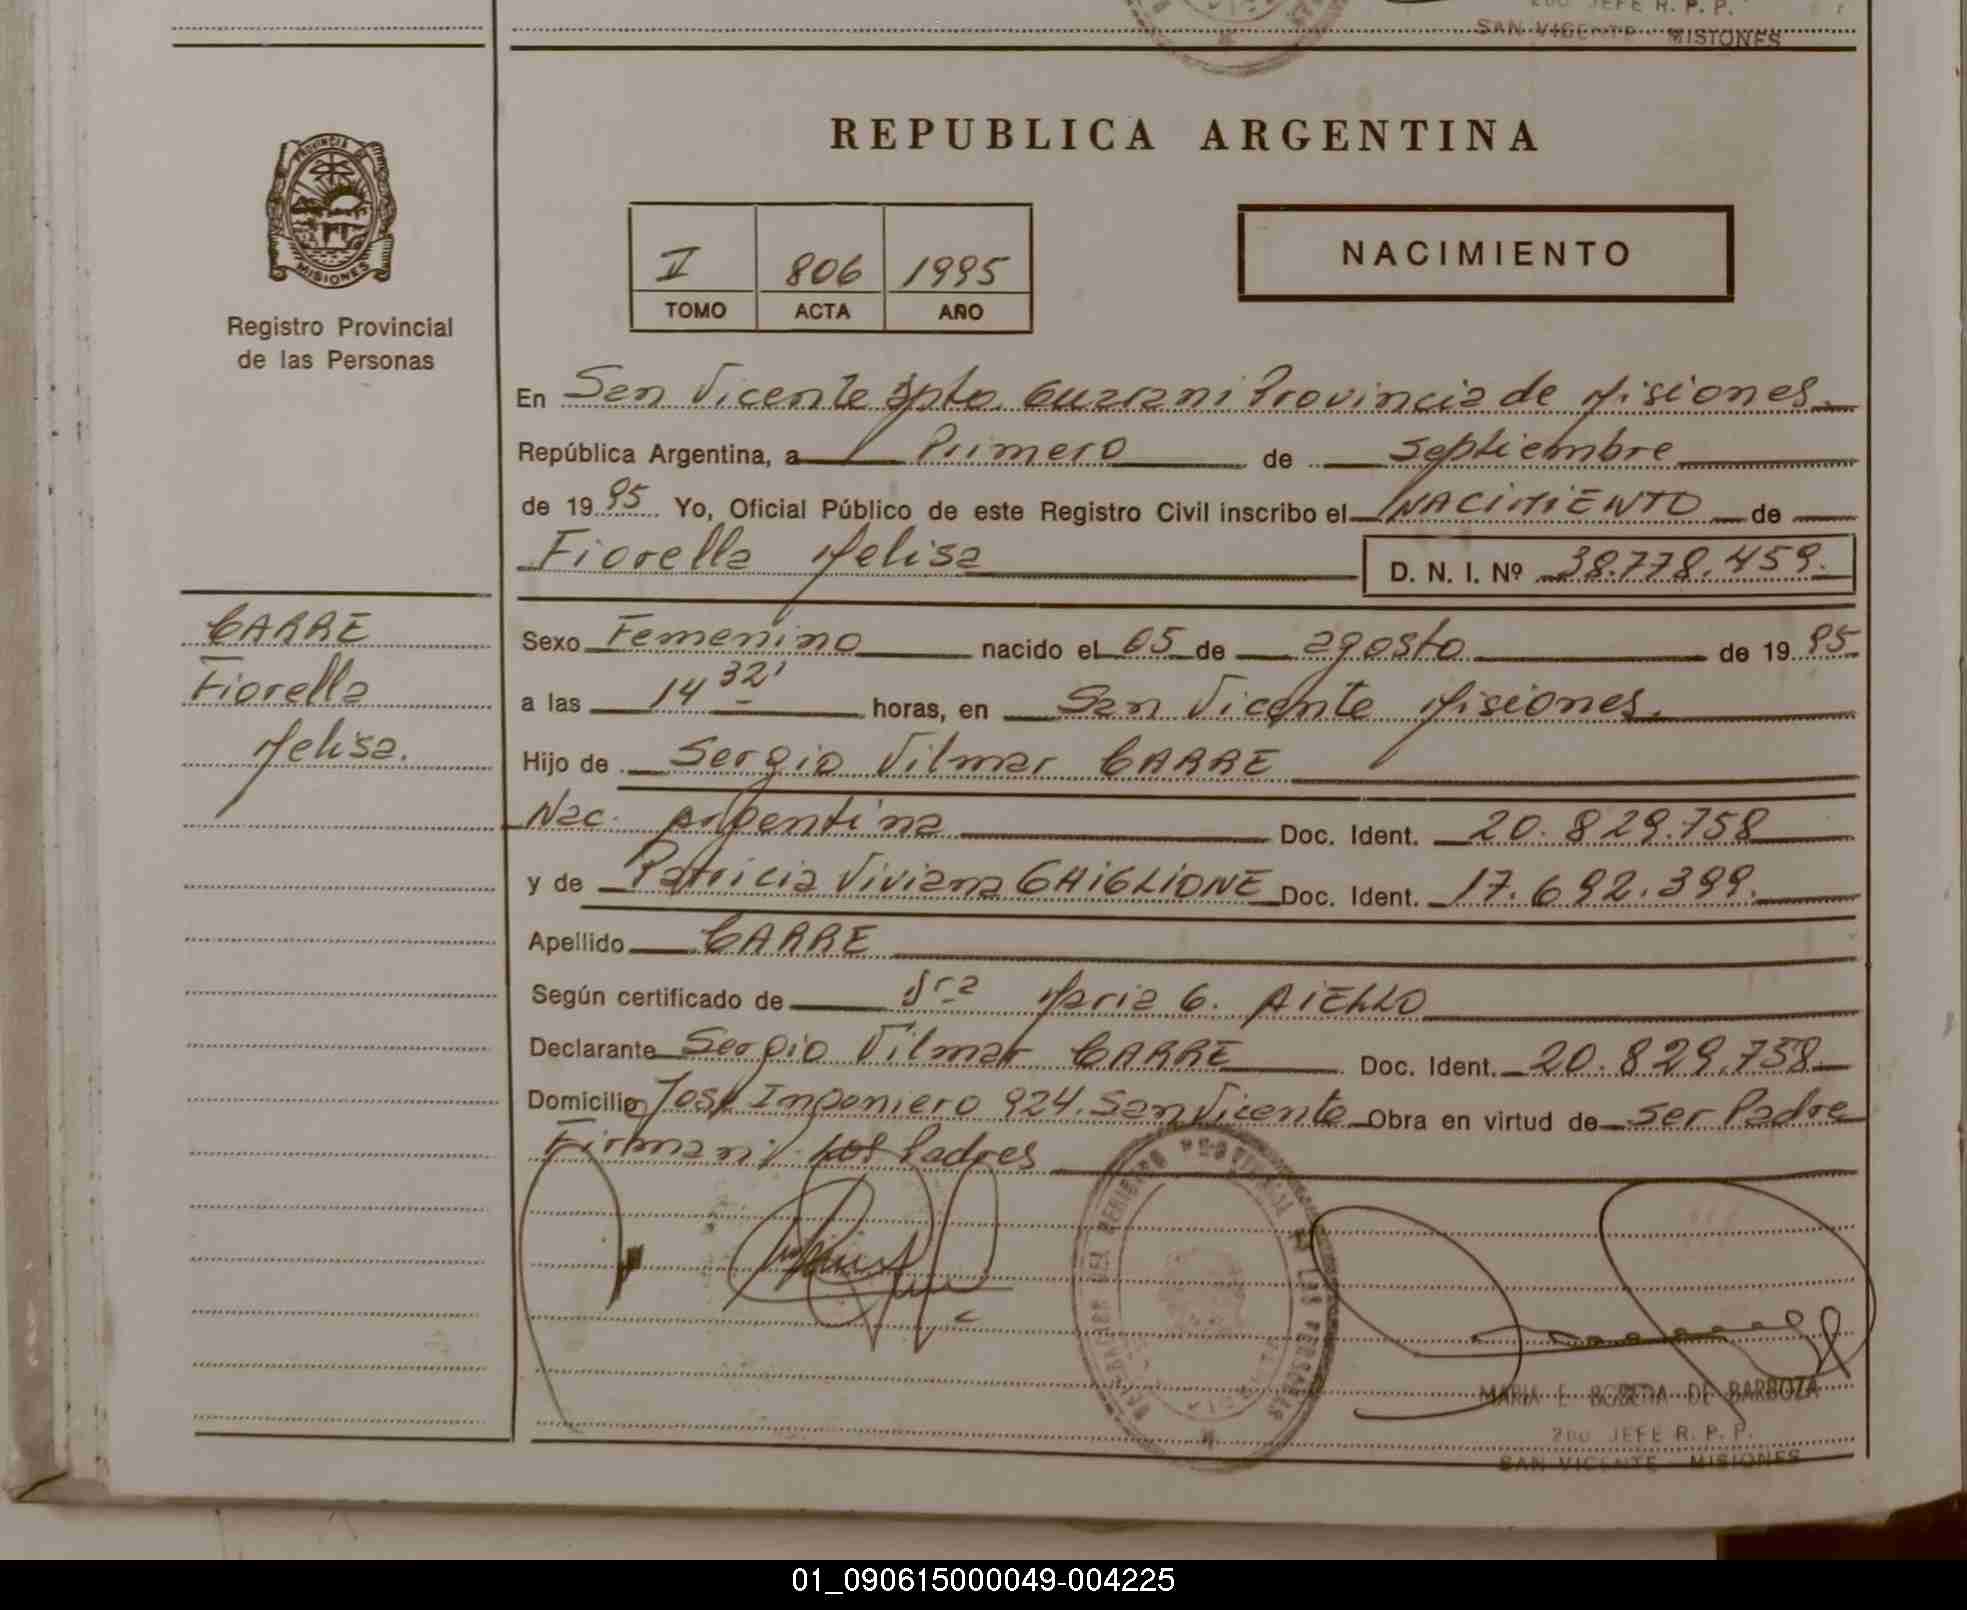 2do JEFE R. P. P.
SAN VICENTE - MISIONES
REPUBLICA ARGENTINA
PROVINCIA DE
MISIONES
Registro Provincial
de las Personas
V 806 1995
TOMO ACTA AÑO
NACIMIENTO
En San Vicente Dpto. Guarani Provincia de Misiones.
República Argentina, a Primero de septiembre
de 1995 Yo, Oficial Público de este Registro Civil inscribo el NACIMIENTO de
Fiorella Melisa D. N. I. Nº 38.778.459.
CARRE
Fiorella
Melisa.
Sexo Femenino nacido el 05 de agosto de 1995
a las 14 32' horas, en San Vicente Misiones.
Hijo de Sergio Vilmar CARRE
Nac. Argentina Doc. Ident. 20.829.758
y de Patricia Viviana GHIGLIONE Doc. Ident. 17.692.399.
Apellido CARRE
Según certificado de Dra Maria G. AIELLO
Declarante Sergio Vilmar CARRE Doc. Ident. 20.829.758
Domicilio Jose Ingeniero 924. San Vicente Obra en virtud de ser Padre
Firman los Padres
MARIA E. DE BARBOZA
2do JEFE R. P. P.
SAN VICENTE - MISIONES
01_090615000049-004225